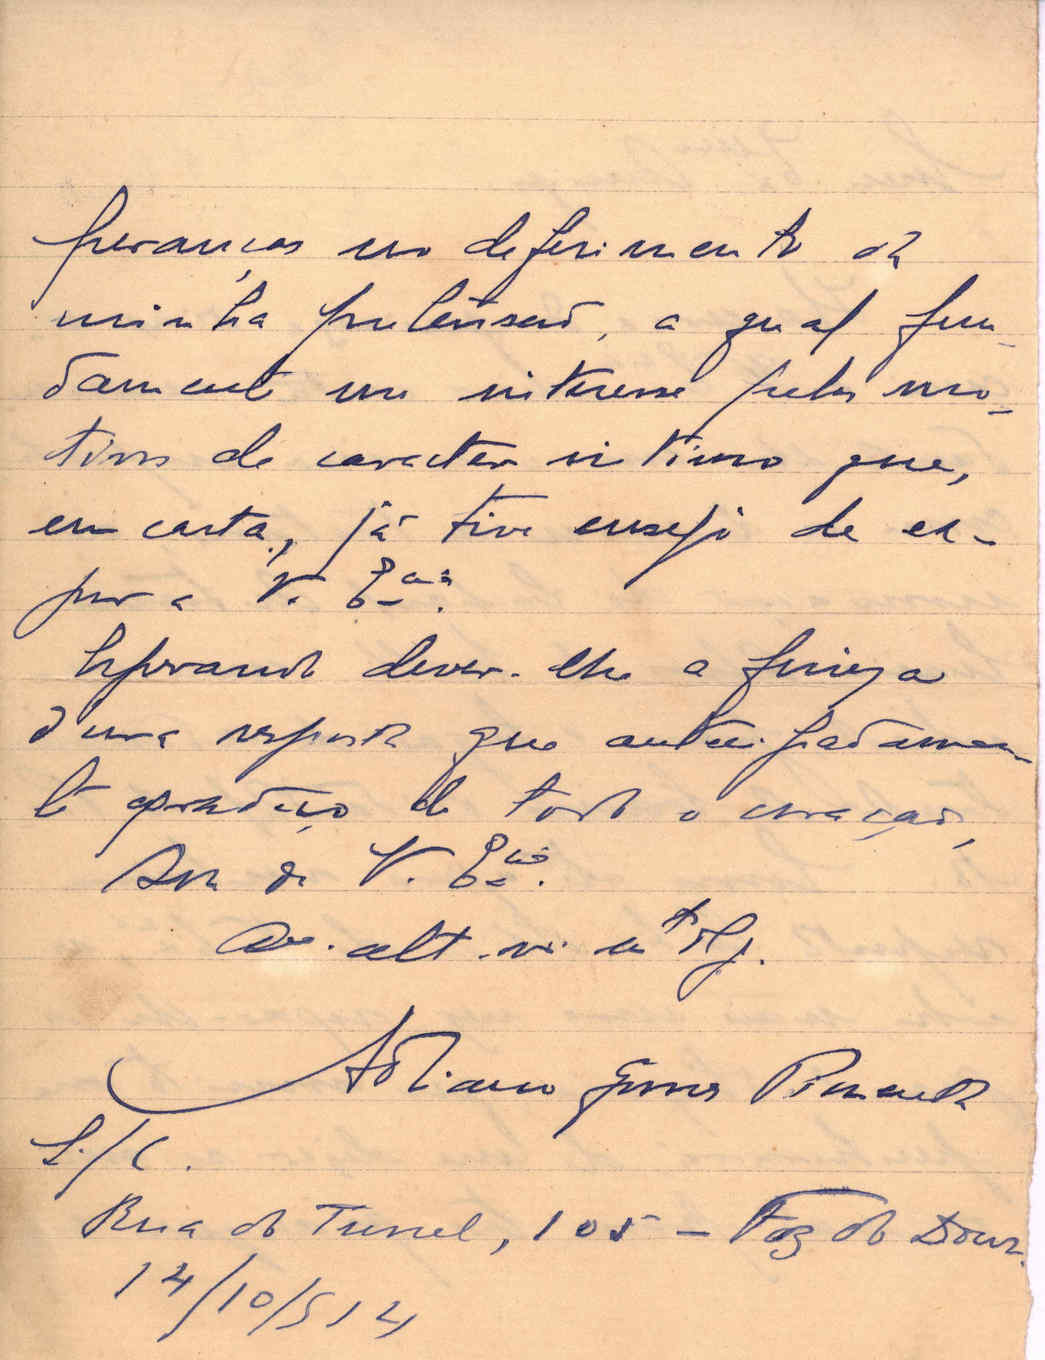 peranças no deferimento da
minha pretensão, a qual fun-
damente me interessa pelos mo-
tivos de caracter intimo que,
em carta, já tive ensejo de ex-
por a V. Ex.cia.
Esperando dever-lhe a fineza
duma resposta que antecipadamen-
te agradeço de todo o coração,
Sou de V. Ex.cia.
At.to
Adriano Gomes Pimenta
S./C.
Rua do Tunel, 105 - Foz do Douro
14/10/514